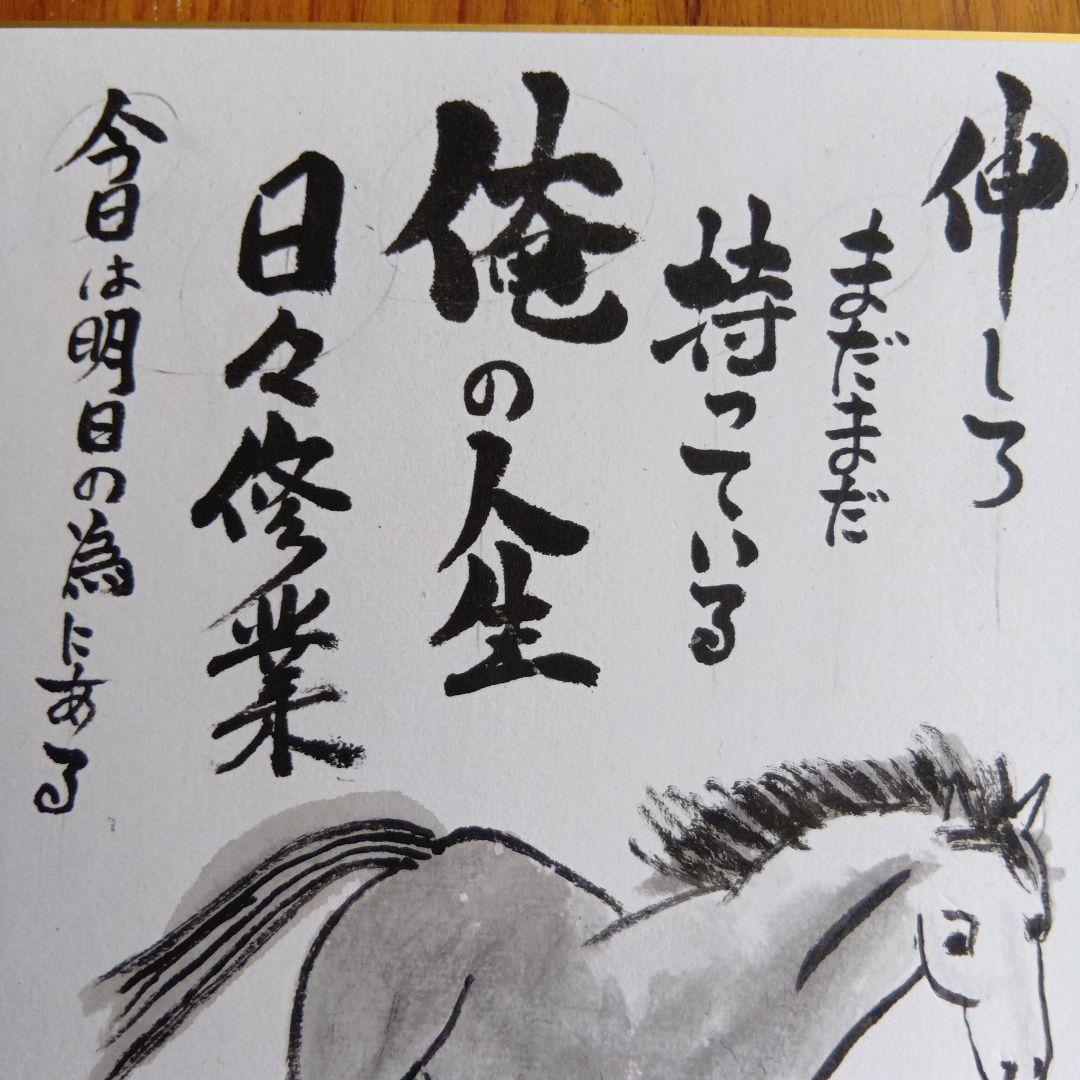 伸しろ
まだまだ
持っている
俺の人生
日々修業
今日は明日の為にある